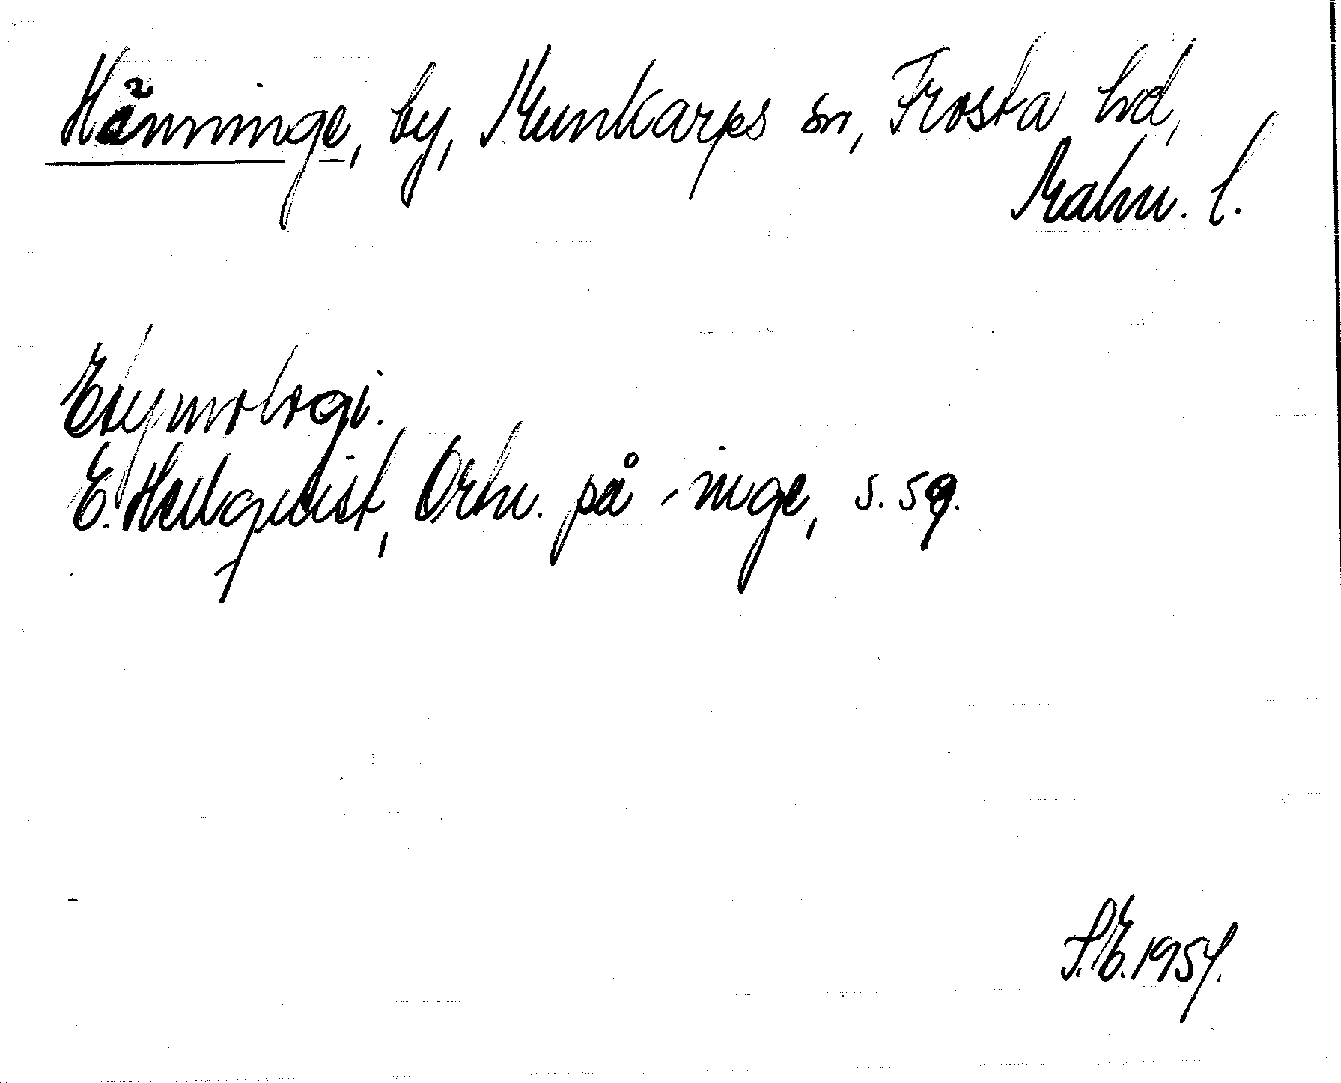 Hänninge, by, Munkarps sn, Frosta hd,
Malm. l.
Etymologi.
E. Hellquist, Ortn. på -inge, s. 59.
S.E. 1957.